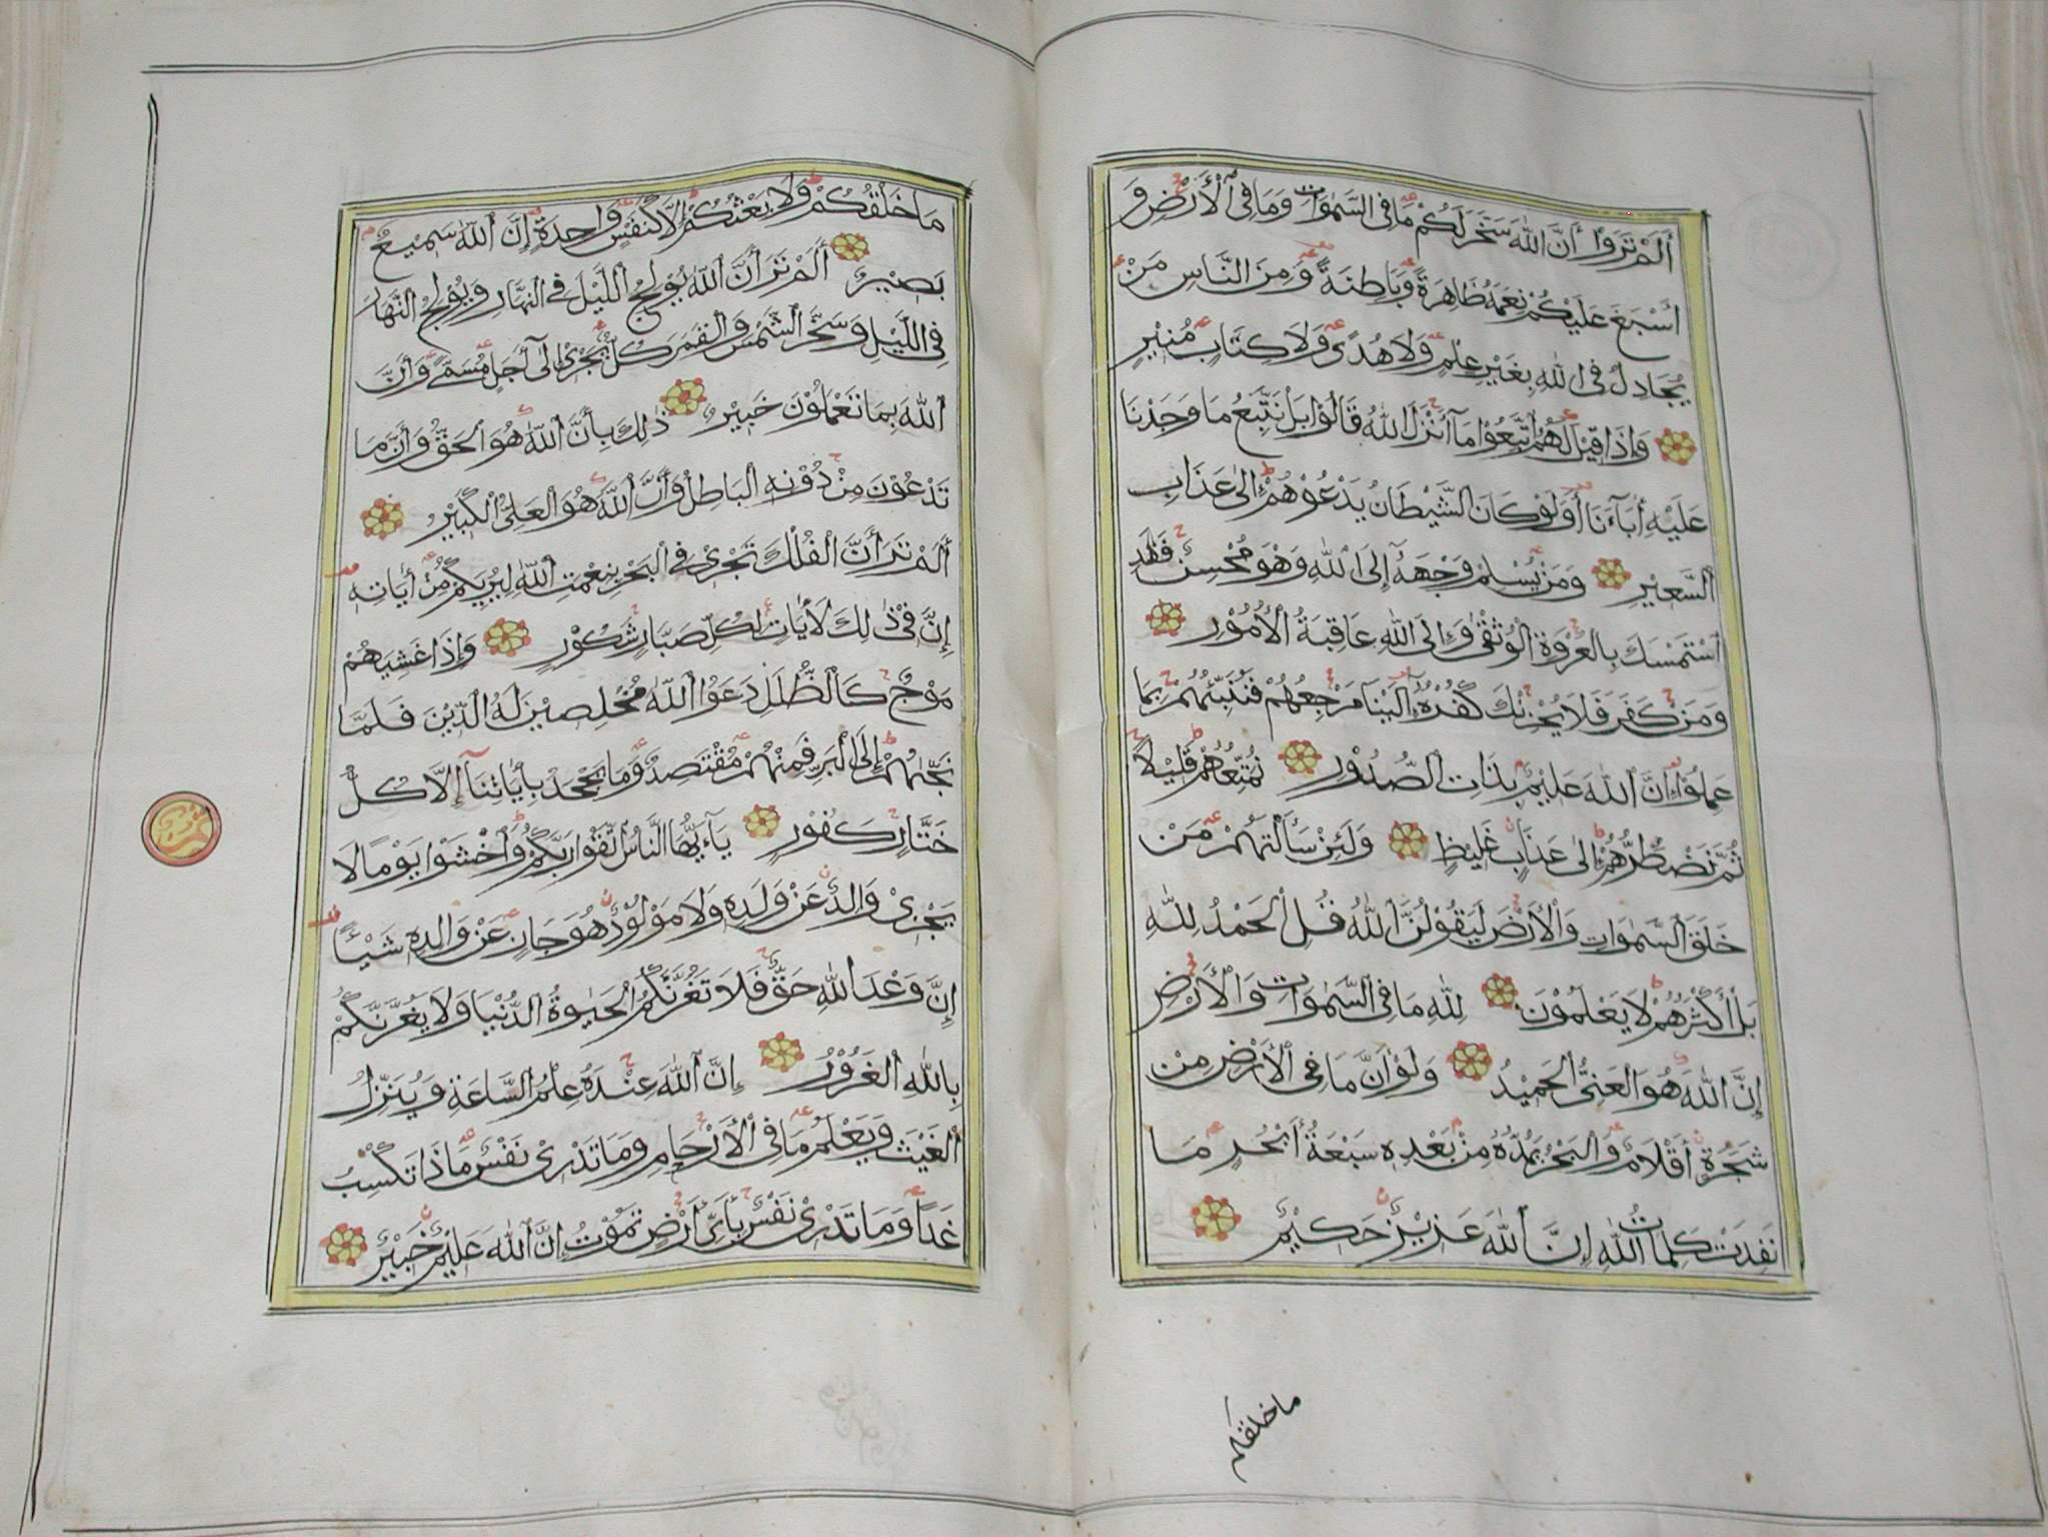 أَلَمْ تَرَوْا أَنَّ اللّٰهَ سَخَّرَ لَكُمْ مَا فِى السَّمٰوَاتِ وَمَا فِى الْأَرْضِ وَ
أَسْبَغَ عَلَيْكُمْ نِعَمَهُ ظَاهِرَةً وَبَاطِنَةً وَمِنَ النَّاسِ مَنْ
يُجَادِلُ فِى اللّٰهِ بِغَيْرِ عِلْمٍ وَلَا هُدًى وَلَا كِتَابٍ مُنِيْرٍ
وَإِذَا قِيْلَ لَهُمُ اتَّبِعُوْا مَآ أَنْزَلَ اللّٰهُ قَالُوْا بَلْ نَتَّبِعُ مَا وَجَدْنَا
عَلَيْهِ أٰبَآءَنَا أَوَلَوْ كَانَ الشَّيْطَانُ يَدْعُوْهُمْ إِلٰى عَذَابِ
السَّعِيْرِ وَمَنْ يُسْلِمْ وَجْهَهُٓ إِلَى اللّٰهِ وَهُوَ مُحْسِنٌ فَقَدِ
اسْتَمْسَكَ بِالْعُرْوَةِ الْوُثْقٰى وَإِلَى اللّٰهِ عَاقِبَةُ الْأُمُوْرِ
وَمَنْ كَفَرَ فَلَا يَحْزُنْكَ كُفْرُهُٓ إِلَيْنَا مَرْجِعُهُمْ فَنُنَبِّئُهُمْ بِمَا
عَمِلُوْا إِنَّ اللّٰهَ عَلِيْمٌ بِذَاتِ الصُّدُوْرِ نُمَتِّعُهُمْ قَلِيْلًا
ثُمَّ نَضْطَرُّهُمْ إِلٰى عَذَابٍ غَلِيْظٍ وَلَئِنْ سَأَلْتَهُمْ مَنْ
خَلَقَ السَّمٰوَاتِ وَالْأَرْضَ لَيَقُوْلُنَّ اللّٰهُ قُلِ الْحَمْدُ لِلّٰهِ
بَلْ أَكْثَرُهُمْ لَا يَعْلَمُوْنَ لِلّٰهِ مَا فِى السَّمٰوَاتِ وَالْأَرْضِ
إِنَّ اللّٰهَ هُوَ الْغَنِىُّ الْحَمِيْدُ وَلَوْ أَنَّ مَا فِى الْأَرْضِ مِنْ
شَجَرَةٍ أَقْلَامٌ وَالْبَحْرُ يَمُدُّهُ مِنْ بَعْدِهِ سَبْعَةُ أَبْحُرٍ مَا
نَفِدَتْ كَلِمَاتُ اللّٰهِ إِنَّ اللّٰهَ عَزِيْزٌ حَكِيْمٌ
ما خلقكم
مَا خَلْقُكُمْ وَلَا بَعْثُكُمْ إِلَّا كَنَفْسٍ وَاحِدَةٍ إِنَّ اللّٰهَ سَمِيْعٌ
بَصِيْرٌ أَلَمْ تَرَ أَنَّ اللّٰهَ يُوْلِجُ اللَّيْلَ فِى النَّهَارِ وَيُوْلِجُ النَّهَارَ
فِى اللَّيْلِ وَسَخَّرَ الشَّمْسَ وَالْقَمَرَ كُلٌّ يَجْرِىْ إِلٰٓى أَجَلٍ مُسَمًّى وَأَنَّ
اللّٰهَ بِمَا تَعْمَلُوْنَ خَبِيْرٌ ذٰلِكَ بِأَنَّ اللّٰهَ هُوَ الْحَقُّ وَأَنَّ مَا
تَدْعُوْنَ مِنْ دُوْنِهِ الْبَاطِلُ وَأَنَّ اللّٰهَ هُوَ الْعَلِىُّ الْكَبِيْرُ
أَلَمْ تَرَ أَنَّ الْفُلْكَ تَجْرِىْ فِى الْبَحْرِ بِنِعْمَتِ اللّٰهِ لِيُرِيَكُمْ مِنْ أٰيَاتِهِ
إِنَّ فِىْ ذٰلِكَ لَأٰيَاتٍ لِكُلِّ صَبَّارٍ شَكُوْرٍ وَإِذَا غَشِيَهُمْ
مَوْجٌ كَالظُّلَلِ دَعَوُا اللّٰهَ مُخْلِصِيْنَ لَهُ الدِّيْنَ فَلَمَّا
نَجّٰىهُمْ إِلَى الْبَرِّ فَمِنْهُمْ مُقْتَصِدٌ وَمَا يَجْحَدُ بِأٰيَاتِنَآ إِلَّا كُلُّ
خَتَّارٍ كَفُوْرٍ يَآ أَيُّهَا النَّاسُ اتَّقُوْا رَبَّكُمْ وَاخْشَوْا يَوْمًا لَا
يَجْزِىْ وَالِدٌ عَنْ وَلَدِهِ وَلَا مَوْلُوْدٌ هُوَ جَازٍ عَنْ وَالِدِهِ شَيْئًا
إِنَّ وَعْدَ اللّٰهِ حَقٌّ فَلَا تَغُرَّنَّكُمُ الْحَيٰوةُ الدُّنْيَا وَلَا يَغُرَّنَّكُمْ
بِاللّٰهِ الْغَرُوْرُ إِنَّ اللّٰهَ عِنْدَهُ عِلْمُ السَّاعَةِ وَيُنَزِّلُ
الْغَيْثَ وَيَعْلَمُ مَا فِى الْأَرْحَامِ وَمَا تَدْرِىْ نَفْسٌ مَاذَا تَكْسِبُ
غَدًا وَمَا تَدْرِىْ نَفْسٌ بِأَىِّ أَرْضٍ تَمُوْتُ إِنَّ اللّٰهَ عَلِيْمٌ خَبِيْرٌ